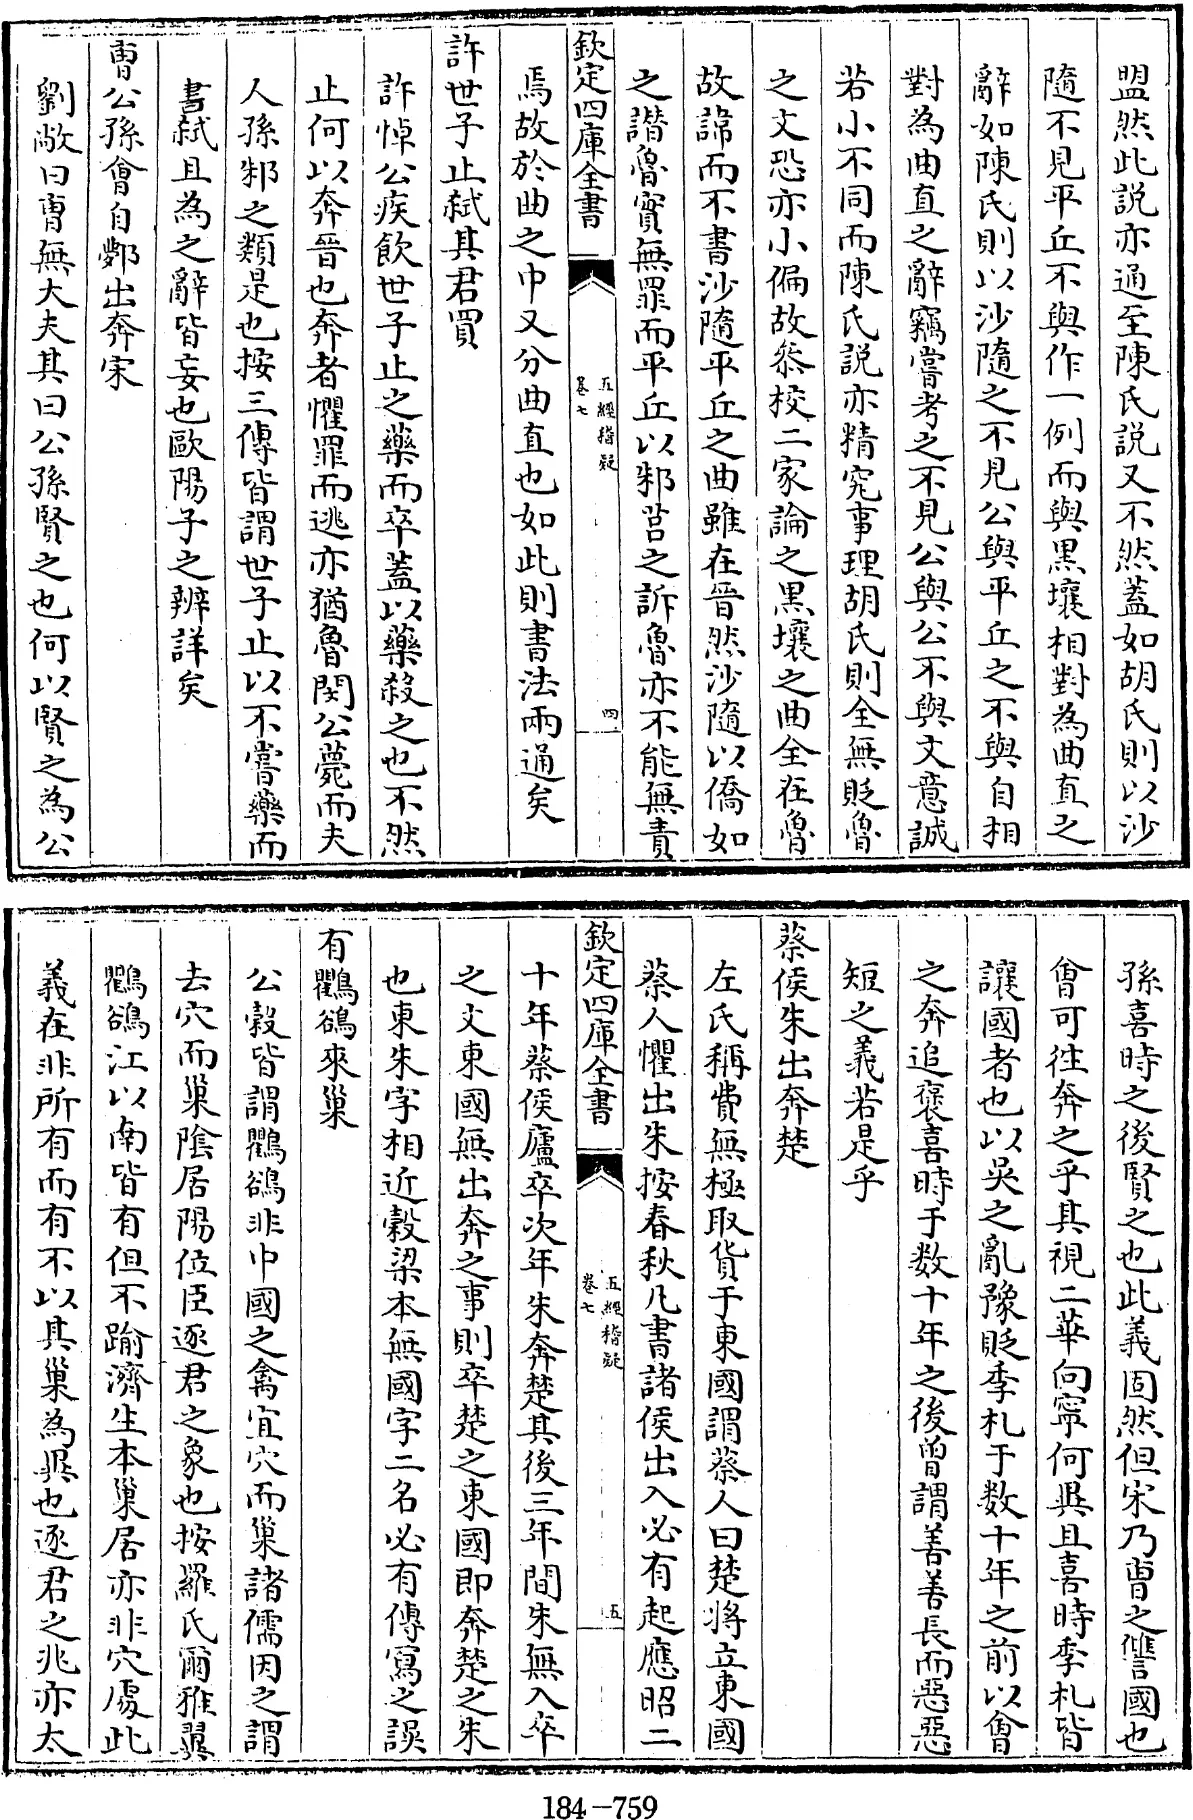 盟然此説亦通至陳氏説又不然蓋如胡氏則以沙
隨不見平丘不與作一例而與黒壤相對為曲直之
辭如陳氏則以沙隨之不見公與平丘之不與自相
對為曲直之辭竊嘗考之不見公與公不與文意誠
若小不同而陳氏説亦精究事理胡氏則全無貶魯
之文恐亦小偏故叅校二家論之黒壤之曲全在魯
故諱而不書沙隨平丘之曲雖在晉然沙隨以僑如
之譖魯實無罪而平丘以邾莒之訴魯亦不能無責
欽定四庫全書
五經稽疑
卷七
四
焉故於曲之中又分曲直也如此則書法兩通矣
許世子止弑其君買
許悼公疾飲世子止之藥而卒蓋以藥殺之也不然
止何以奔晉也奔者懼罪而逃亦猶魯閔公薨而夫
人孫邾之類是也按三傳皆謂世子止以不嘗藥而
書弑且為之辭皆妄也歐陽子之辨詳矣
曹公孫會自鄸出奔宋
劉敞曰曹無大夫其曰公孫賢之也何以賢之為公
孫喜時之後賢之也此義固然但宋乃曹之讐國也
會可往奔之乎其視二華向寧何異且喜時季札皆
讓國者也以吳之亂豫貶季札于数十年之前以會
之奔追褒喜時于数十年之後曾謂善善長而惡惡
短之義若是乎
蔡侯朱出奔楚
左氏稱費無極取貨于東國謂蔡人曰楚將立東國
蔡人懼出朱按春秋凡書諸侯出入必有起應昭二
欽定四庫全書
五經稽疑
卷七
五
十年蔡侯廬卒次年朱奔楚其後三年間朱無入卒
之文東國無出奔之事則卒楚之東國即奔楚之朱
也東朱字相近穀梁本無國字二名必有傳寫之誤
有鸜鵒來巢
公穀皆謂鸜鵒非中國之禽宜穴而巢諸儒因之謂
去穴而巢隂居陽位臣逐君之象也按羅氏爾雅翼
鸜鵒江以南皆有但不踰濟生本巢居亦非穴處此
義在非所有而有不以其巢為異也逐君之兆亦太
184-759